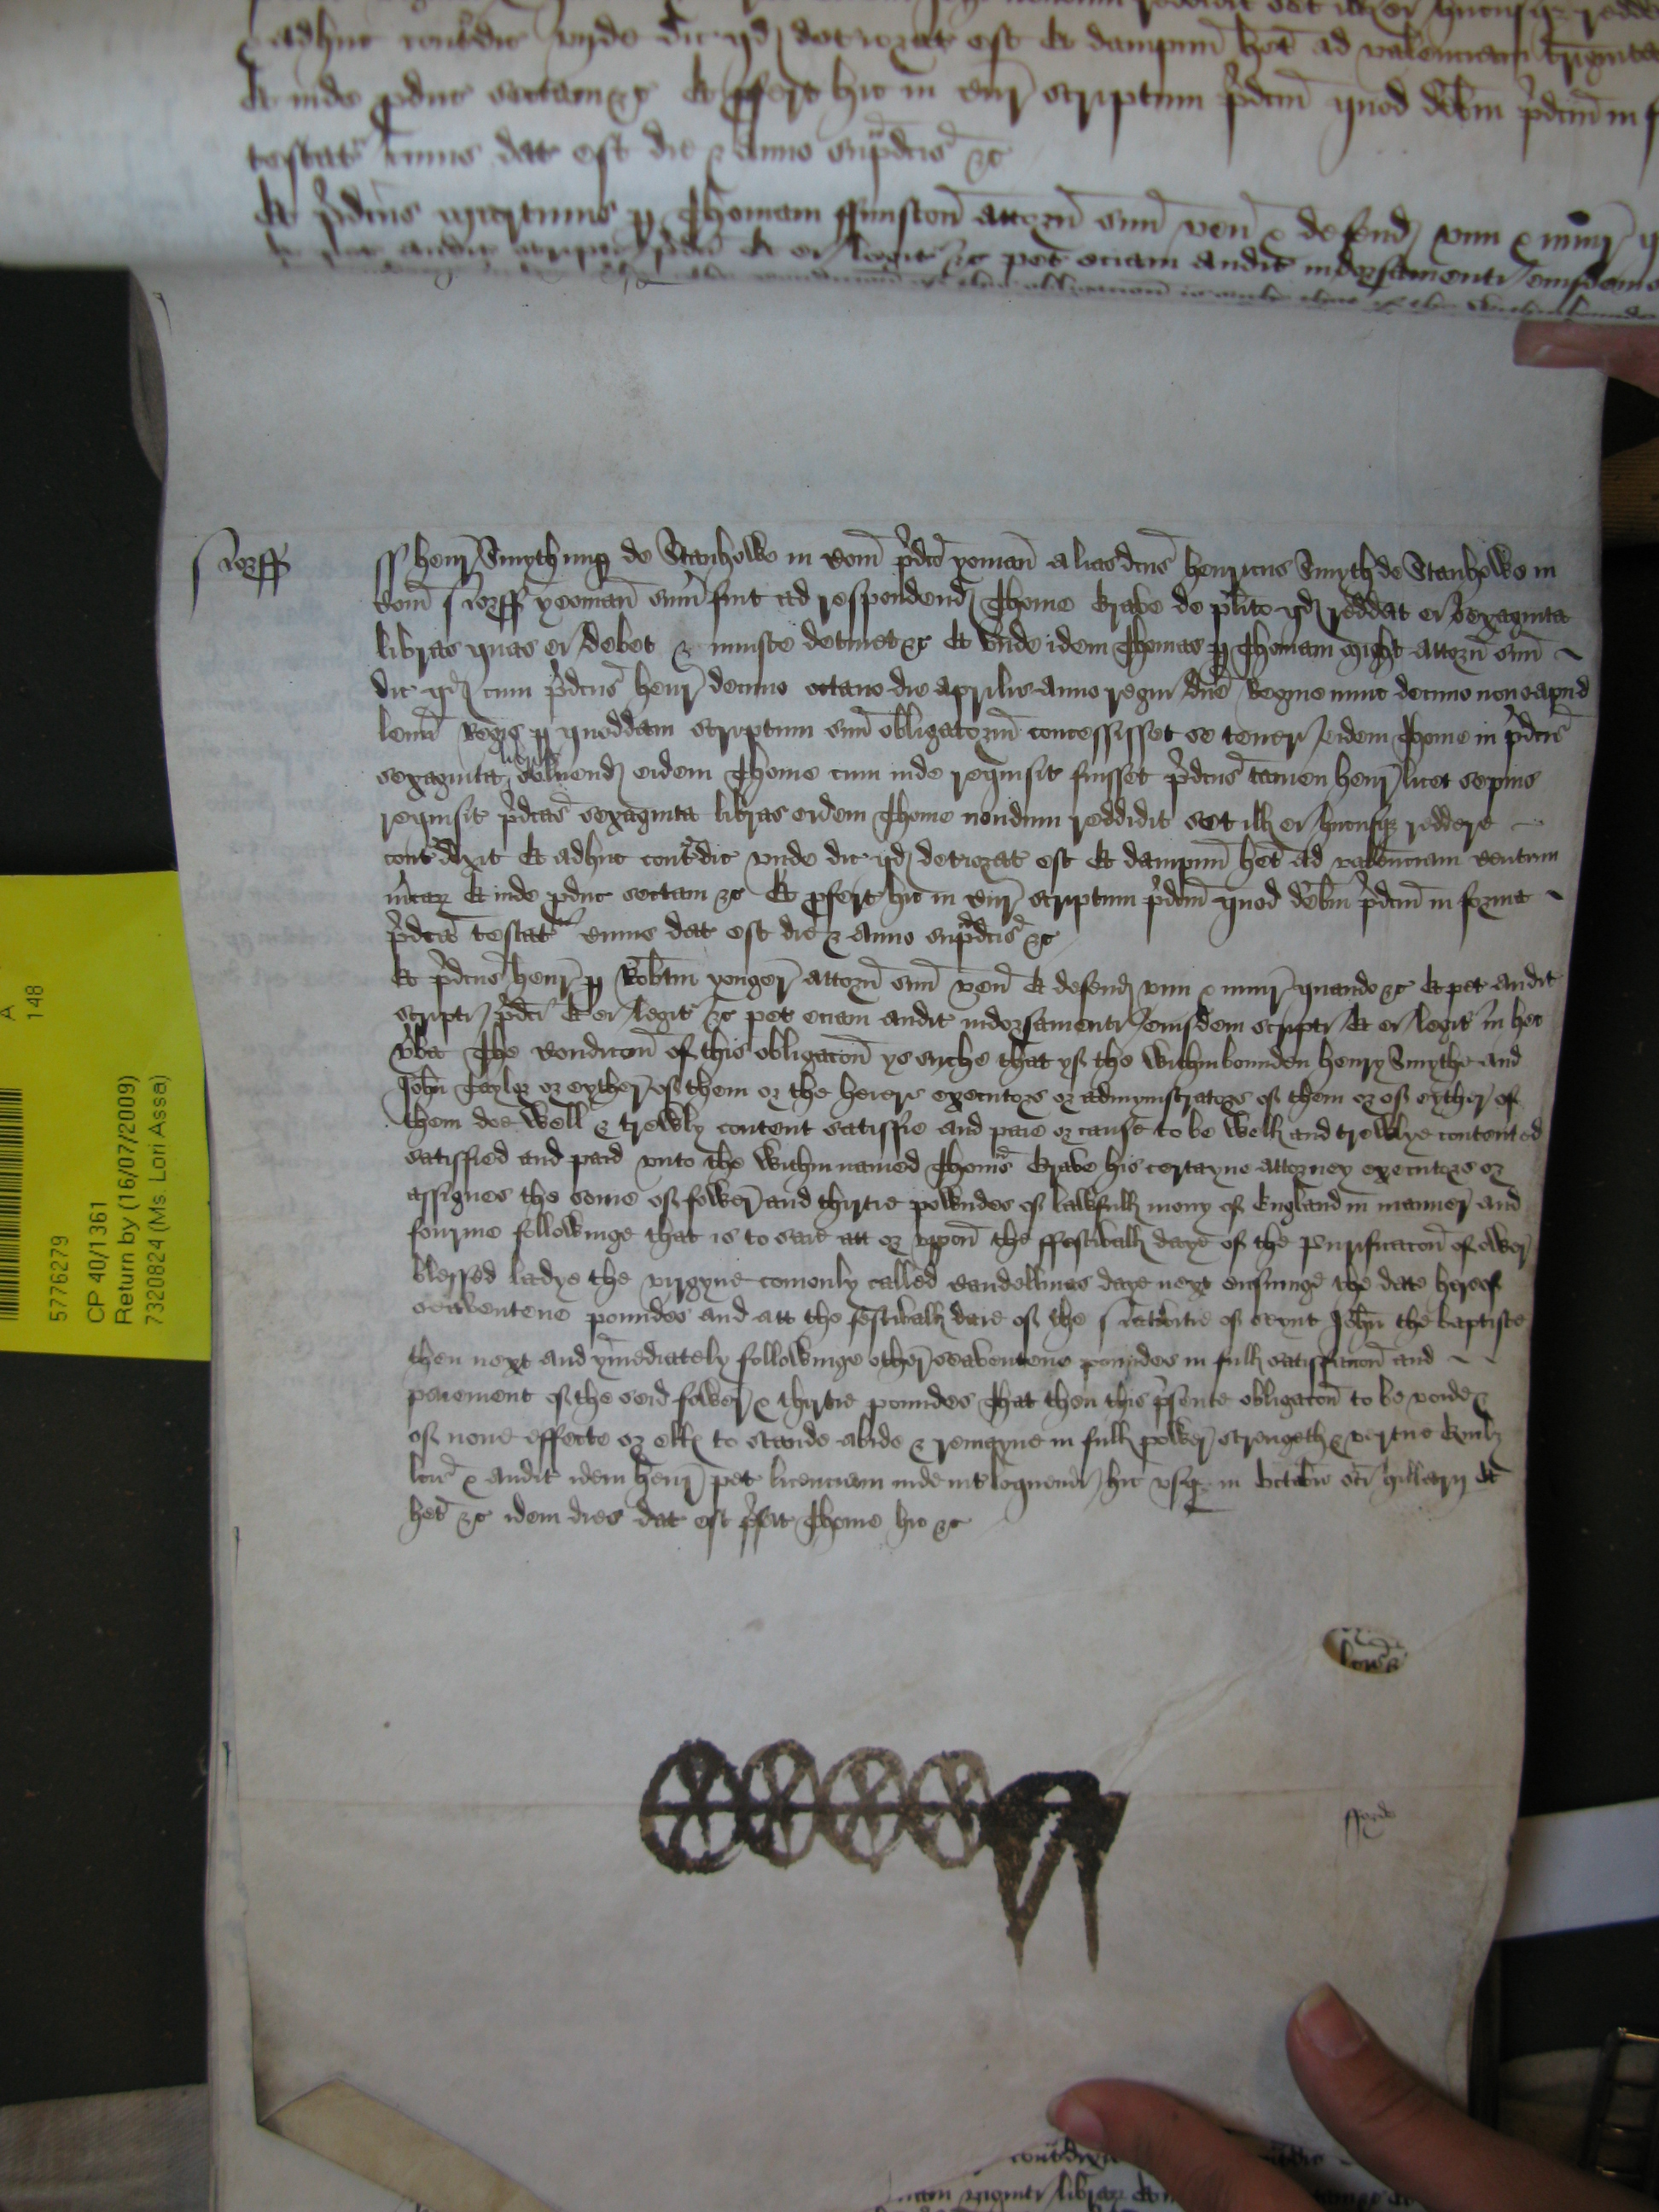 adhuc contrdic unde dic qd deteriorat est Et dampnu het ad valenciam triginta
Et inde pduc sectam &c Et pfert hic in Cur scriptum pdcm quod debm pdcm in f
testat cuius dat est die & anno supdcis &c
Et pdcus p Thomam attorn suu ven & defend vim & iniur q
audit script pdci Et ei legit &c pet eciam audit indorsamenti eiusdem s
Norff
ss Henr Smyth nup de Stanhowe in Com pdco yoman alias dcus Henricus Smyth de Stanhowe in
Com Norff yeoman sum fuit ad respondend Thome Crabe de plito qd reddat ei sexaginta
libras quas ei debet & iniuste detinet &c Et unde idem Thomas p Thomam Hight attorn suu
dic qd cum pdcus Henr decimo octavo die Aprilis anno regni dne Regine nunc decimo nono apud
lenn Regis p quoddam scriptum suu obligatoriu concessisset se teneri eidem Thome in pdcis
sexaginta libris solvend eidem Thome cum inde requisit fuisset pdcus tamen Henr licet sepius
requisit pdcas sexaginta libras eidem Thome nondum reddidit set ill ei hucusq reddere
contrdixit Et adhuc contrdic unde dic qd deteriorat est Et dampnu het ad valenciam Centum
mcar Et inde pduc sectam &c Et pfert hic in Cur scriptum pdcm quod debm pdcm in forma
pdca testat Cuius dat est die & Anno supdcis &c
Et pdcus Henr p Robtm yonger attorn suu ven Et defend vim & iniur quando &c Et pet audit
scripti pdci Et ei legit &c pet eciam audit indorsamenti eiusdem scripti Et ei legit in hec
vba The Condicon of this obligacon ys suche that yf the withinbounden Henry Smythe and
John Taylor or eyther of them or the heiers executors or admynistrators of them or of eyther of
them doe well & trewly content satisfie and paie or cause to be well and trewlye contented
satisfied and paid unto the within named Thoms Crabe his certayne attorney executors or
assignes the some of fower and thyrtie powndes of lawfull mony of England in maner and
fourme followinge that is to saie att or uppon the ffestivall daye of the Purificacon of ower
blessed ladye the virgyne comonly called Candellmas daye next ensuinge the date hereof
seaventene poundes and att the festivall daie of the Nativitie of seynt John the baptiste
then next and ymediately followinge other seaventene poundes in full satisfaccon and
paiement of the seid fower & thyrtie poundes That then this psente obligacon to be voide &
of none effecte or ells to stande abide & remayne in full power strengeth & vertue Quib
lcis & audit idem Henr pet licenciam inde intloquendi hic usq in Octabis sci Hillarij Et
het &c idem dies dat est pfat Thome hic &c
fforde
A
148
5776279
CP 40/1361
Return by (16/07/2009)
7320824 (Ms. Lori Assa)